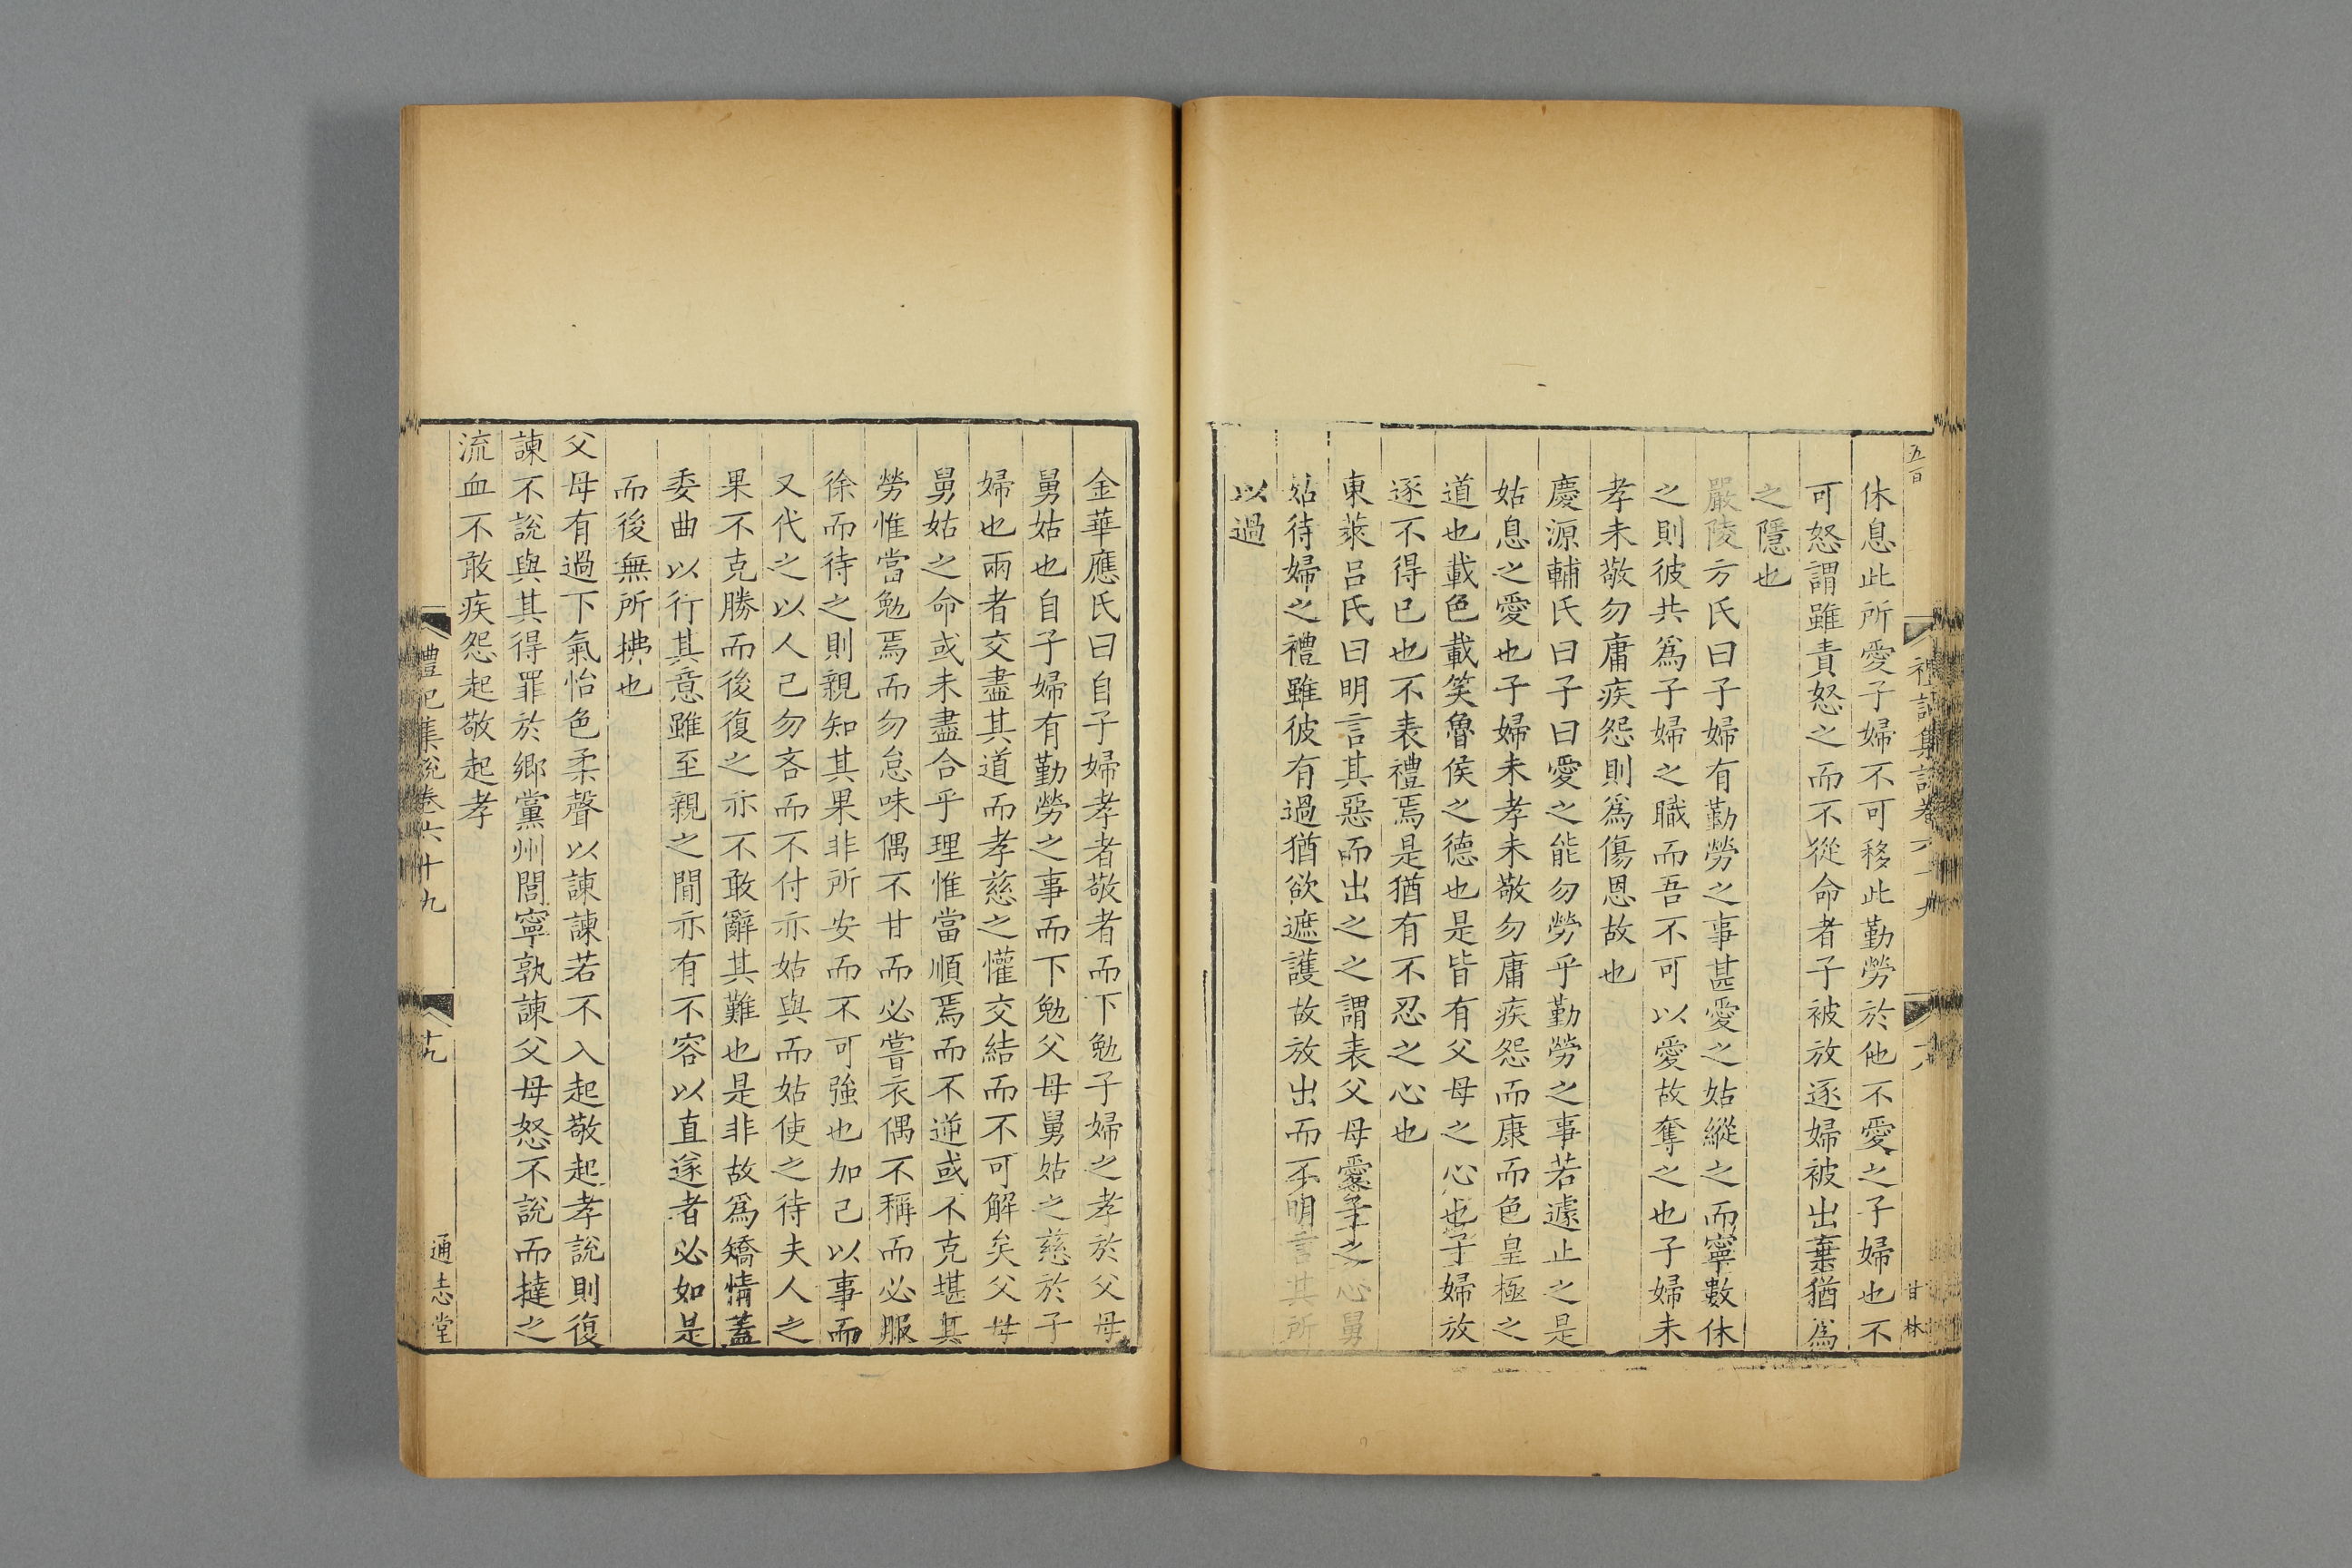 五百
禮記集說卷六十九
十八
甘林
休息此所愛子婦不可移此勤勞於他不愛之子婦也不
可怒謂雖責怒之而不從命者子被放逐婦被出棄猶為
之隱也
嚴陵方氏曰子婦有勤勞之事甚愛之姑縱之而寧數休
之則彼共為子婦之職而吾不可以愛故奪之也子婦未
孝未敬勿庸疾怨則為傷恩故也
慶源輔氏曰子曰愛之能勿勞乎勤勞之事若遽止之是
姑息之愛也子婦未孝未敬勿庸疾怨而康而色皇極之
道也載色載笑魯侯之德也是皆有父母之心也子婦放
逐不得已也不表禮焉是猶有不忍之心也
東萊呂氏曰明言其惡而出之之謂表父母愛子之心舅
姑待婦之禮雖彼有過猶欲遮護故放出而不明言其所
以過
金華應氏曰自子婦孝者敬者而下勉子婦之孝於父母
舅姑也自子婦有勤勞之事而下勉父母舅姑之慈於子
婦也兩者交盡其道而孝慈之懽交結而不可解矣父母
舅姑之命或未盡合乎理惟當順焉而不逆或不克堪其
勞惟當勉焉而勿怠味偶不甘而必嘗衣偶不稱而必服
徐而待之則親知其果非所安而不可強也加己以事而
又代之以人己勿吝而不付亦姑與而姑使之待夫人之
果不克勝而後復之亦不敢辭其難也是非故為矯情蓋
委曲以行其意雖至親之間亦有不容以直遂者必如是
而後無所拂也
父母有過下氣怡色柔聲以諫諫若不入起敬起孝說則復
諫不說與其得罪於鄉黨州閭寧孰諫父母怒不說而撻之
流血不敢疾怨起敬起孝
禮記集說卷六十九
十九
通志堂